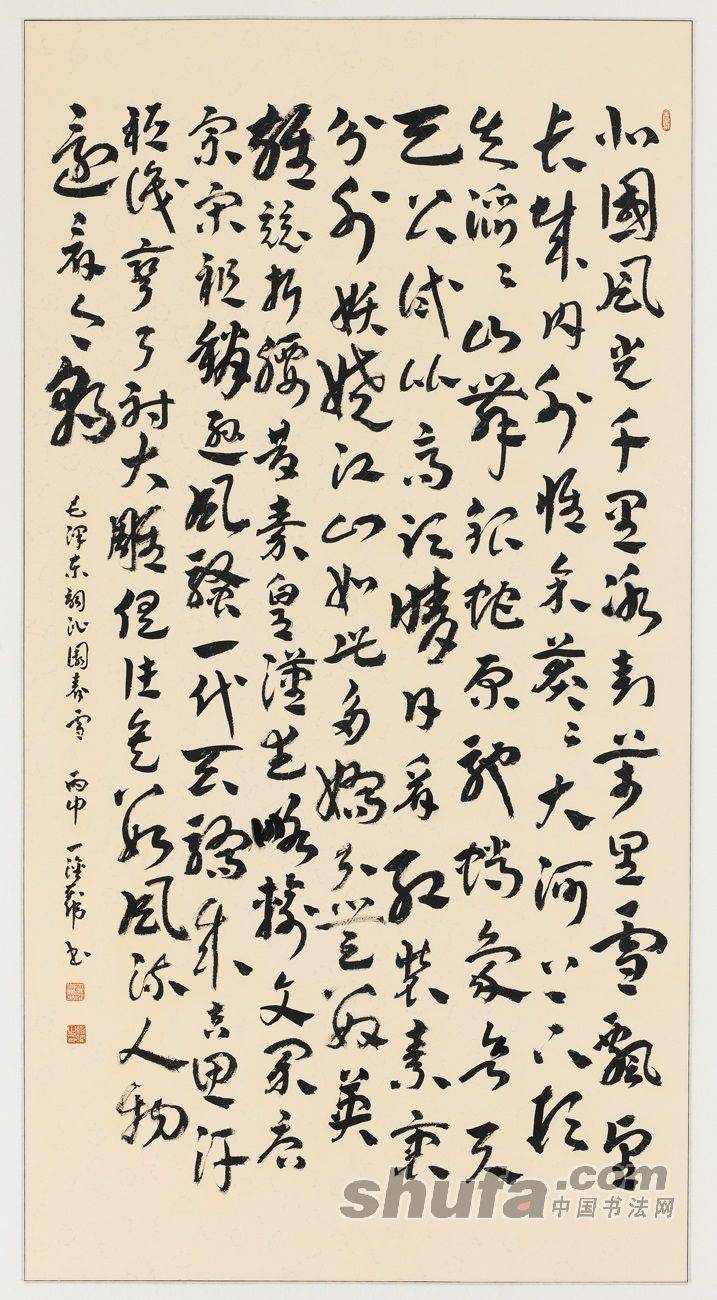 北國風光千里冰封萬里雪飄望
长城内外惟余莽〻大河上下顿
失滔〻山舞银蛇原驰蜡象欲与
天公试比高须晴日看红装素裹
分外妖娆江山如此多娇引无数英
雄競折腰昔秦皇漢武略输文采唐
宗宋祖稍逊風騷一代天骄成吉思汗
祗识弯弓射大雕俱往矣数風流人物
还看今朝
毛泽东词沁園春雪 丙申 书
shufa.com
中国书法网